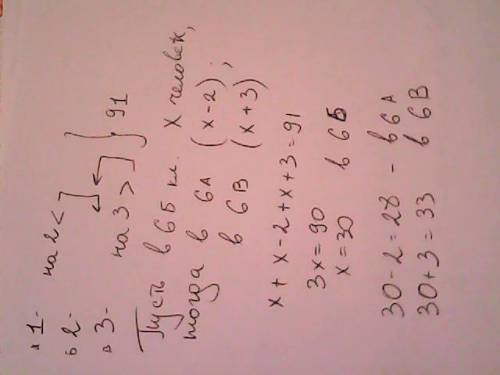 А 1- на 2 <
Б 2-
В 3- на 3 > } 91
Пусть в 6Б кл. x человек,
тогда в 6А (x-2)
в 6В (x+3) ;
x + x - 2 + x + 3 = 91
3x = 90
x = 30 в 6Б
30 - 2 = 28 - в 6А
30 + 3 = 33 в 6В